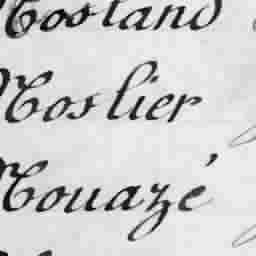 Mosland
Moslier
Mouazé